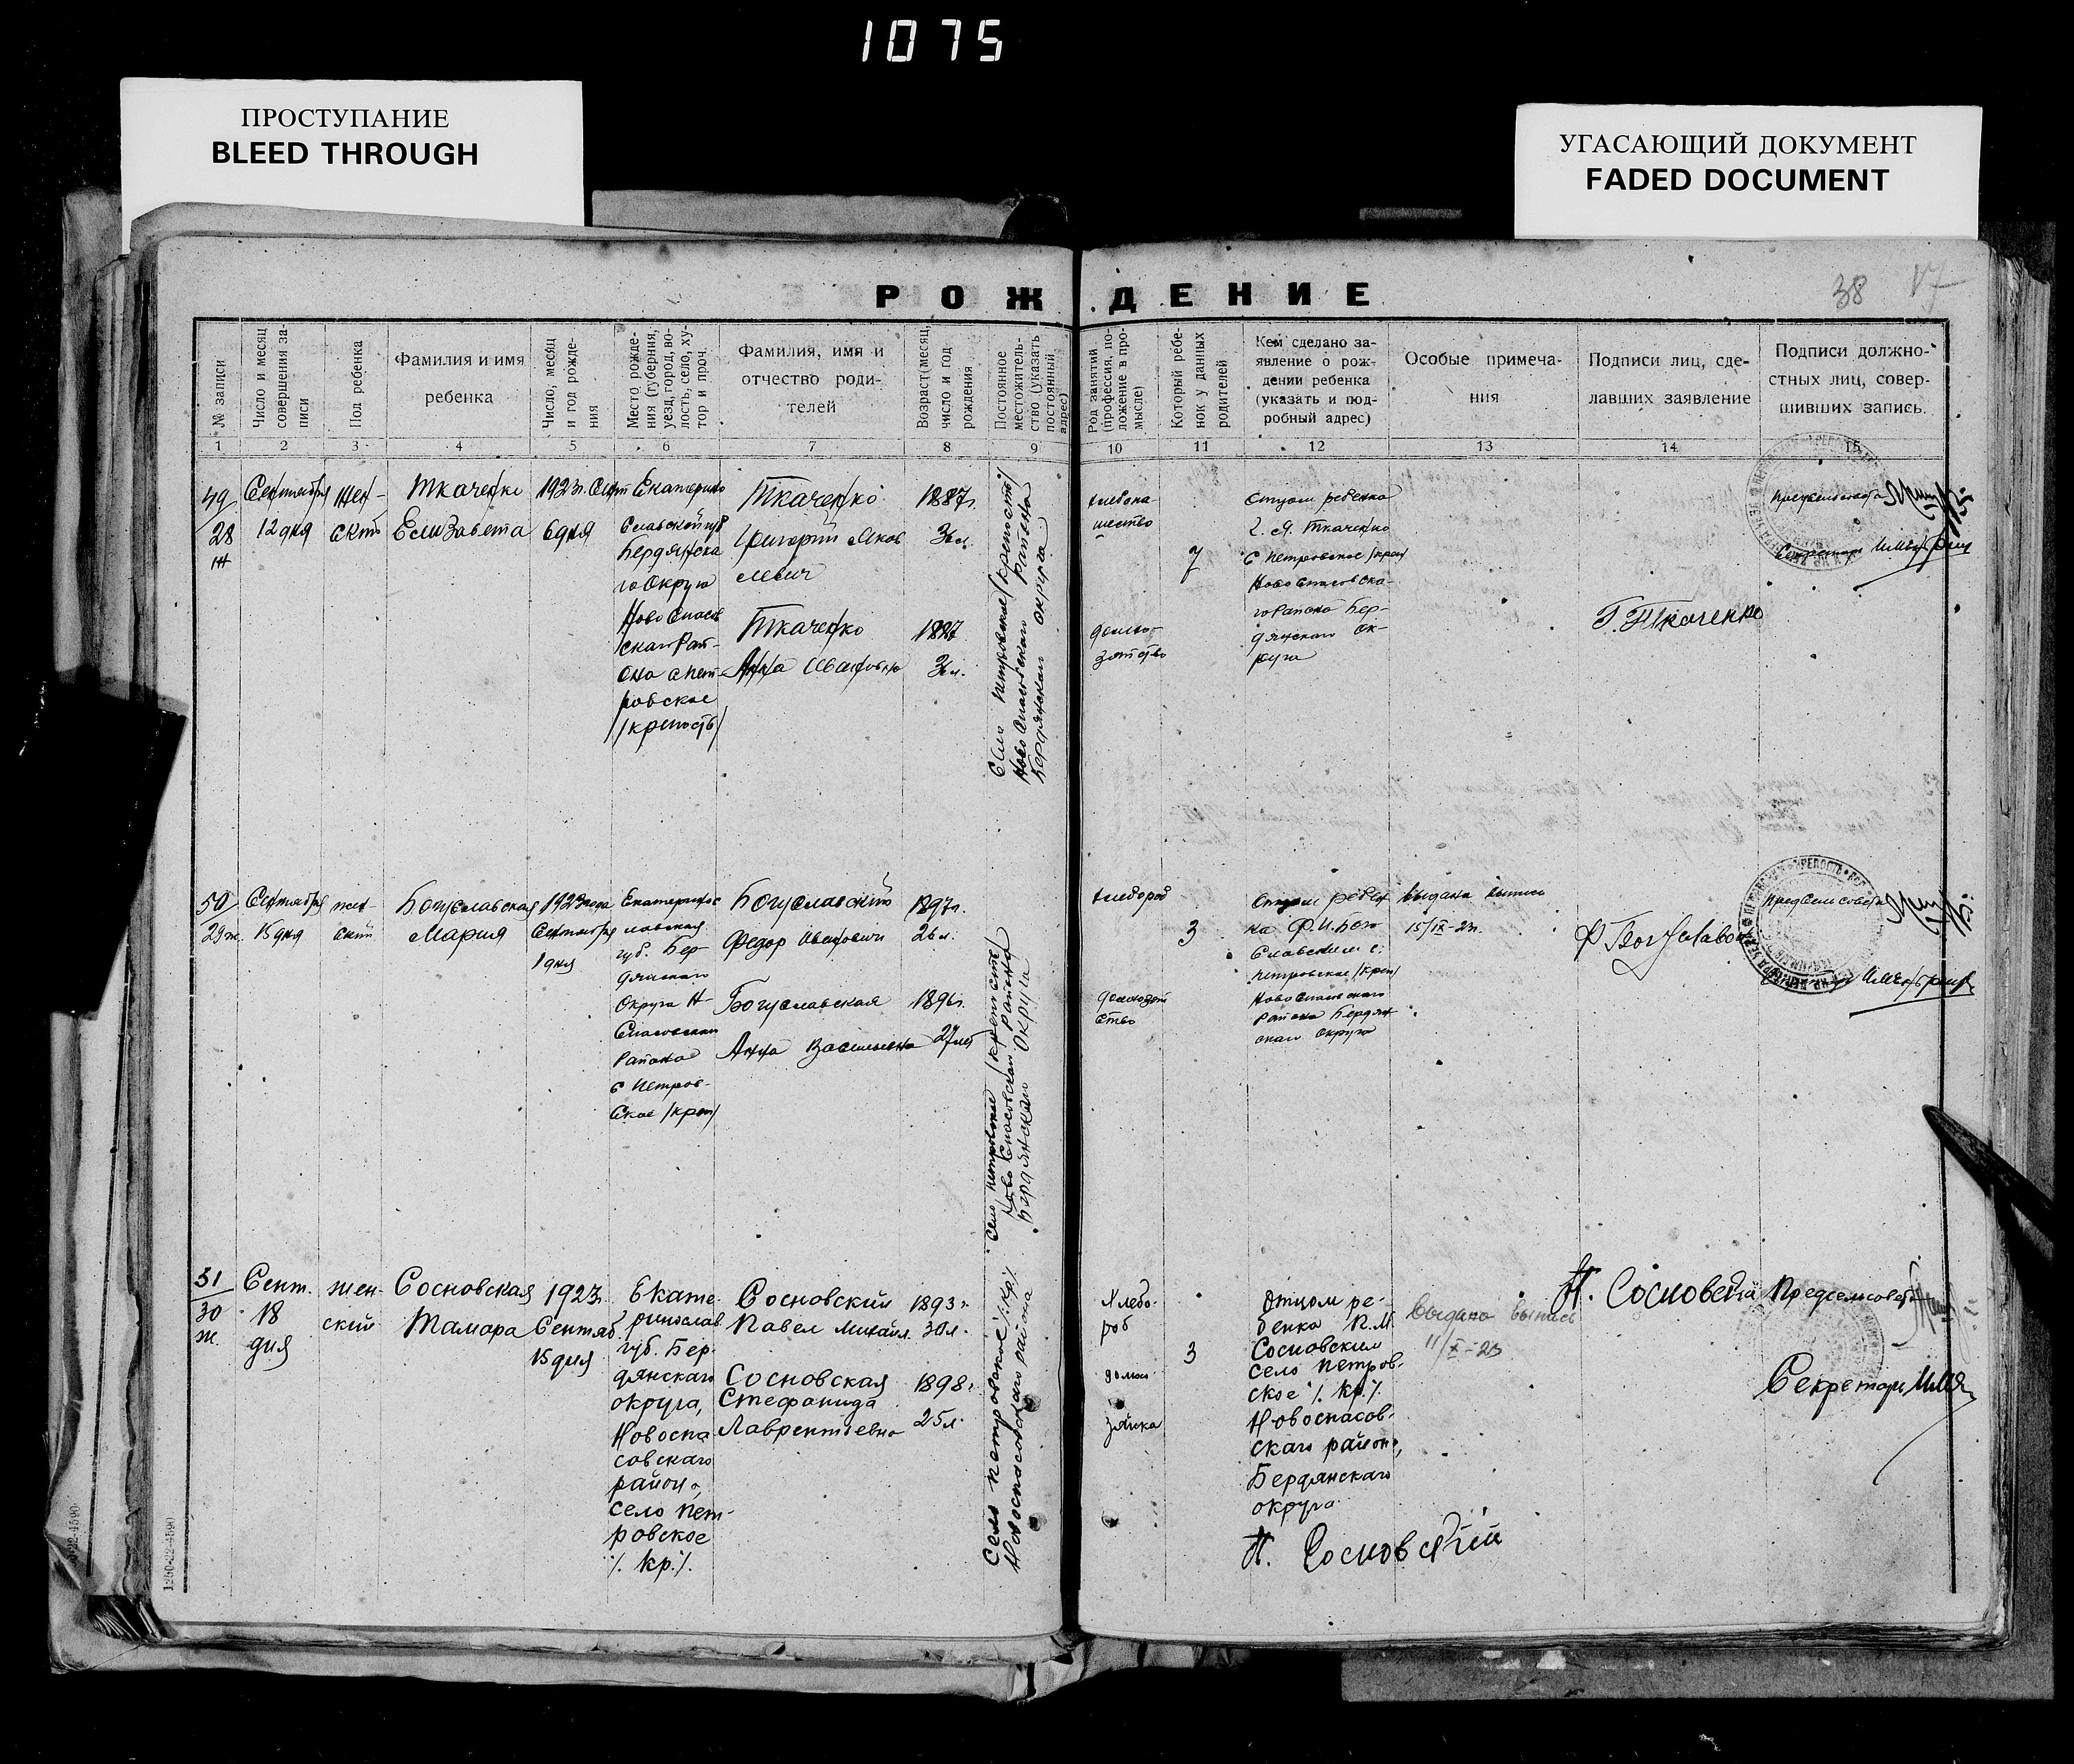 1075
ПРОСТУПАНИЕ
BLEED THROUGH
УГАСАЮЩИЙ ДОКУМЕНТ
FADED DOCUMENT
РОЖДЕНИЕ
38
17
№ записи
Число и месяц
совершения за-
писи
Пол ребенка
Фамилия и имя
ребенка
Число, месяц
и год рожде-
ния
Место рожде-
ния (губерния,
уезд, город, во-
лость, село, ху-
тор и проч.
Фамилия, имя и
отчество роди-
телей
Возраст (месяц,
число и год
рождения
Постоянное
местожитель-
ство (указать
постоянный
адрес)
Род занятий
(профессия, по-
ложение в про-
мысле)
Который ребе-
нок у данных
родителей
Кем сделано за-
явление о рож-
дении ребенка
(указать и под-
робный адрес)
Особые примеча-
ния
Подписи лиц, сде-
лавших заявление
Подписи должно-
стных лиц, совер-
шивших запись.
1 2 3 4 5 6 7 8 9 10 11 12 13 14 15
49
28
ж
Сентября
12 дня
Жен-
ский
Ткаченко
Елизавета
1923г. Сент
6 дня
Екатерино
славской губ
Бердянска
го Округа
Ново Спасов
скаго Рай-
она с Пет-
ровское
/крепость/
Ткаченко
Григорий Яков
левич
Ткаченко
Анна Ивановна
1887г.
36 л.
1827
36 л.
Село Петровское /крепость/
Ново Спасовскаго Района
Бердянскаго округа
хлебопа-
шество
домо-
7
Отцом ребенка
Г. Я. Ткаченко
с Петровское /креп/
Ново Спасовска-
го Района Бер-
дянскаго Ок-
руга
Г. Ткаченко
Секретарь
50
29 ж.
Сентября
15 дня
жен
ский
Богуславская
Мария
1923 года
Сентября
1 дня
Екатеринос
лавская
губ. Бер
дянскаго
Округа Н-
Спасовскаго
Района
с Петров-
ское /креп/
Богуславский
Федор Иванович
Богуславская
Анна Васильевна
1897г.
26 л.
1896г.
27 лет
Село Петровское /крепость/
Ново Спасовскаго Района
Бердянскаго Округа
хлебороб
домохозяй
ство
3
Отцом ребен
ка Ф. И. Бог
славским с.
Петровское /креп/
Ново Спасовскаго
Района Бердян
скаго Округа
Выдана выпись
15/IX-23г.
Предсельсовета
31
30
ж.
Сент.
18
дня
жен-
ский
Сосновская
Тамара
1923г.
Сентяб.
15 дня
Екате-
ринослав.
губ. Бер-
дянскаго
округа,
Новоспа
совскаго
района,
село Пет-
ровское
/. кр./.
Сосновский
Павел Михайл.
Сосновская
Стефанида
Лаврентьевна
1893г.
30 л.
1898г.
25 л.
Село Петровское /.кр./.
Новоспасовскаго района
Хлебо-
роб
домохо-
зяйка
3
Отцом ре-
бенка П.М.
Сосновским
село Петров-
ское /. кр./.
Новоспасов-
скаго района,
Бердянскаго
округа.
П. Сосновский
Выдана выпись
11/X-23
П. Сосновский
Предсельсовета
Секретарь
1250-22-4590